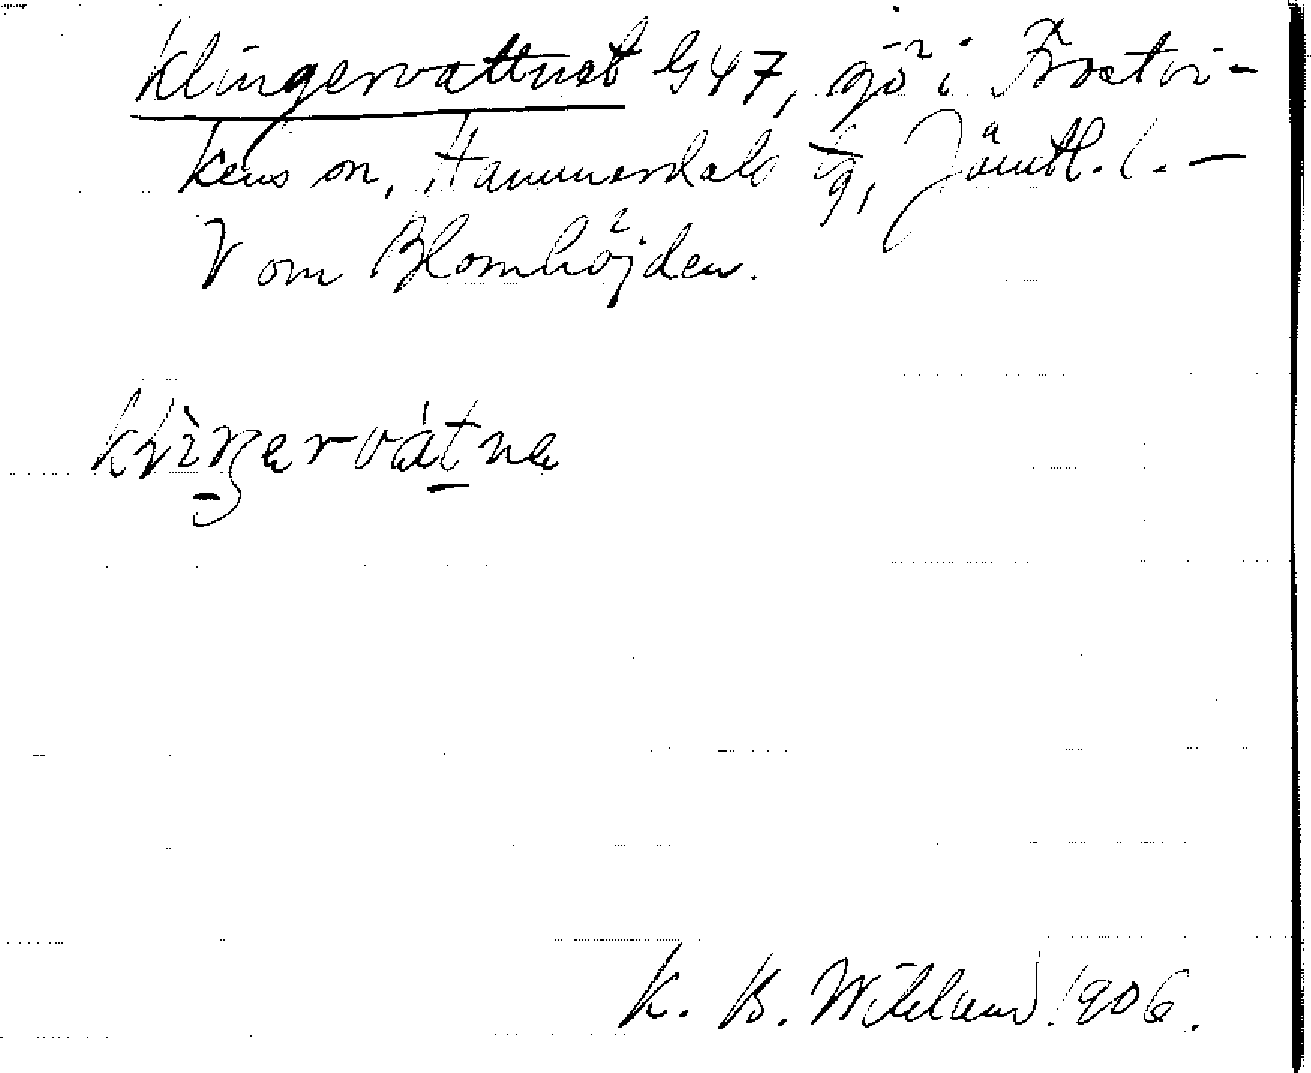 Klingervattnet G47, sjö i Frostvi-
kens sn, Hammerdals tg, Jämtl. l. —
V om Blomhöjden.
kliŋervatnə
K. B. Wiklund 1906.